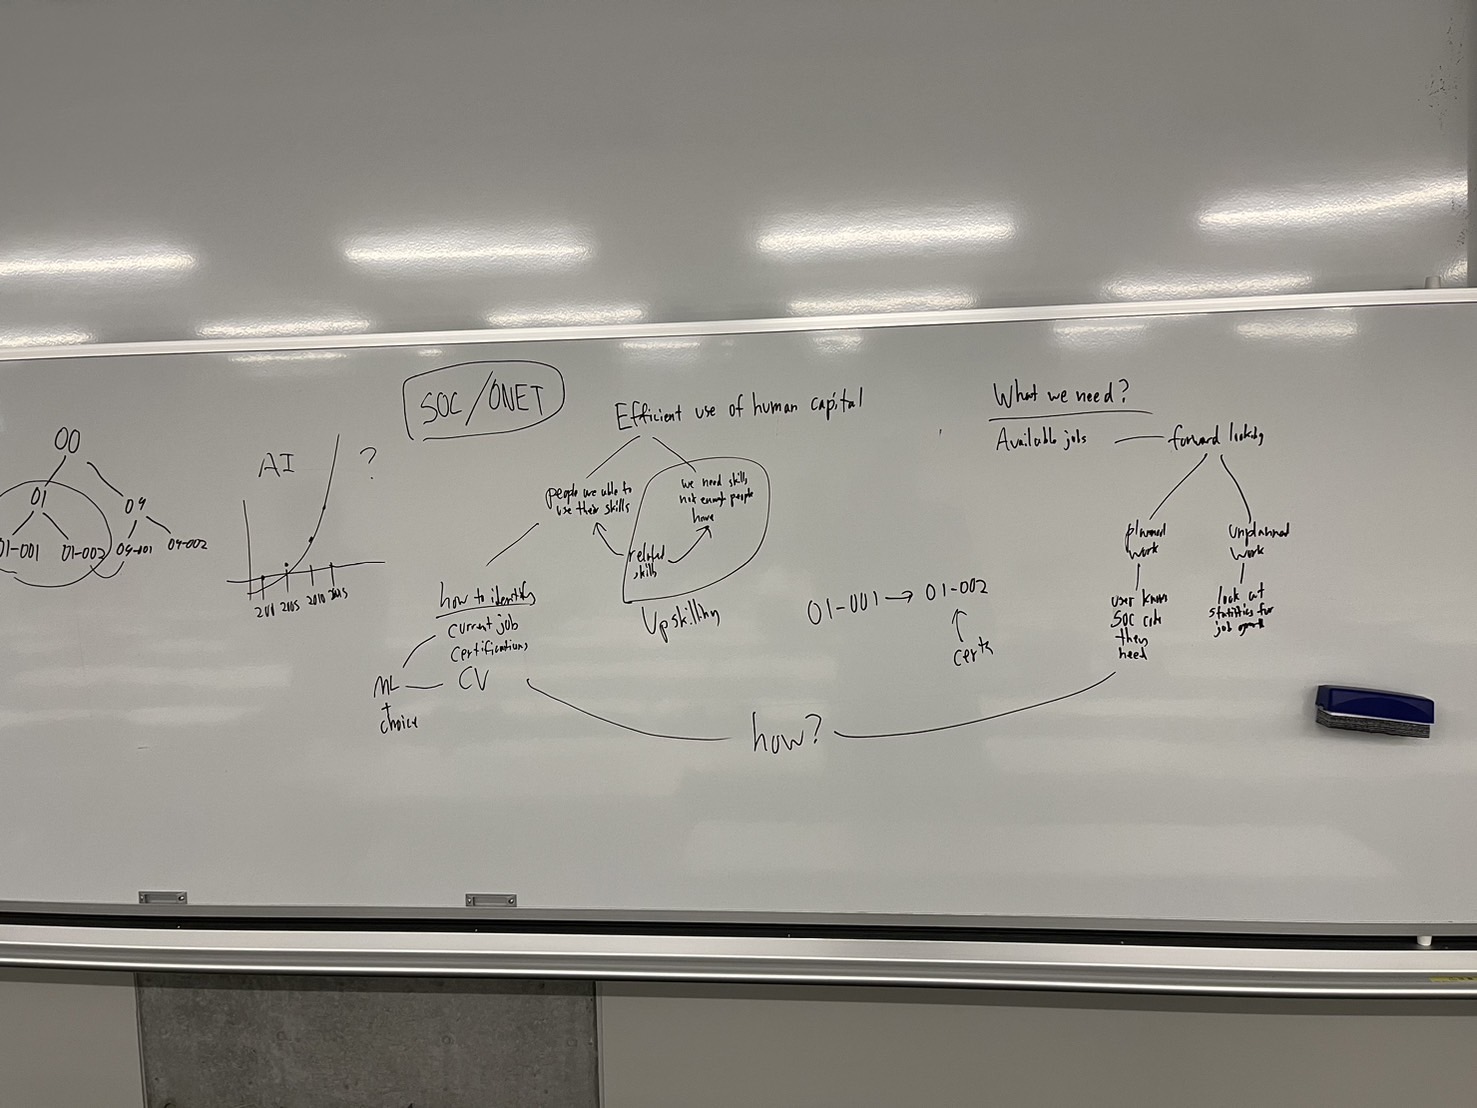 00
01
04
01-001
01-002
04-001
04-002
AI
?
2005
2010
2015
SOC/ONET
Efficient use of human capital
people are able to
use their skills
we need skills
not enough people
have
related
skills
Upskilling
how to identify
current job
certifications
CV
ML
+
choice
how?
01-001 → 01-002
certs
What we need?
Available jobs
forward looking
planned
work
unplanned
work
user knows
SOC code
they
need
look at
statistics for
job